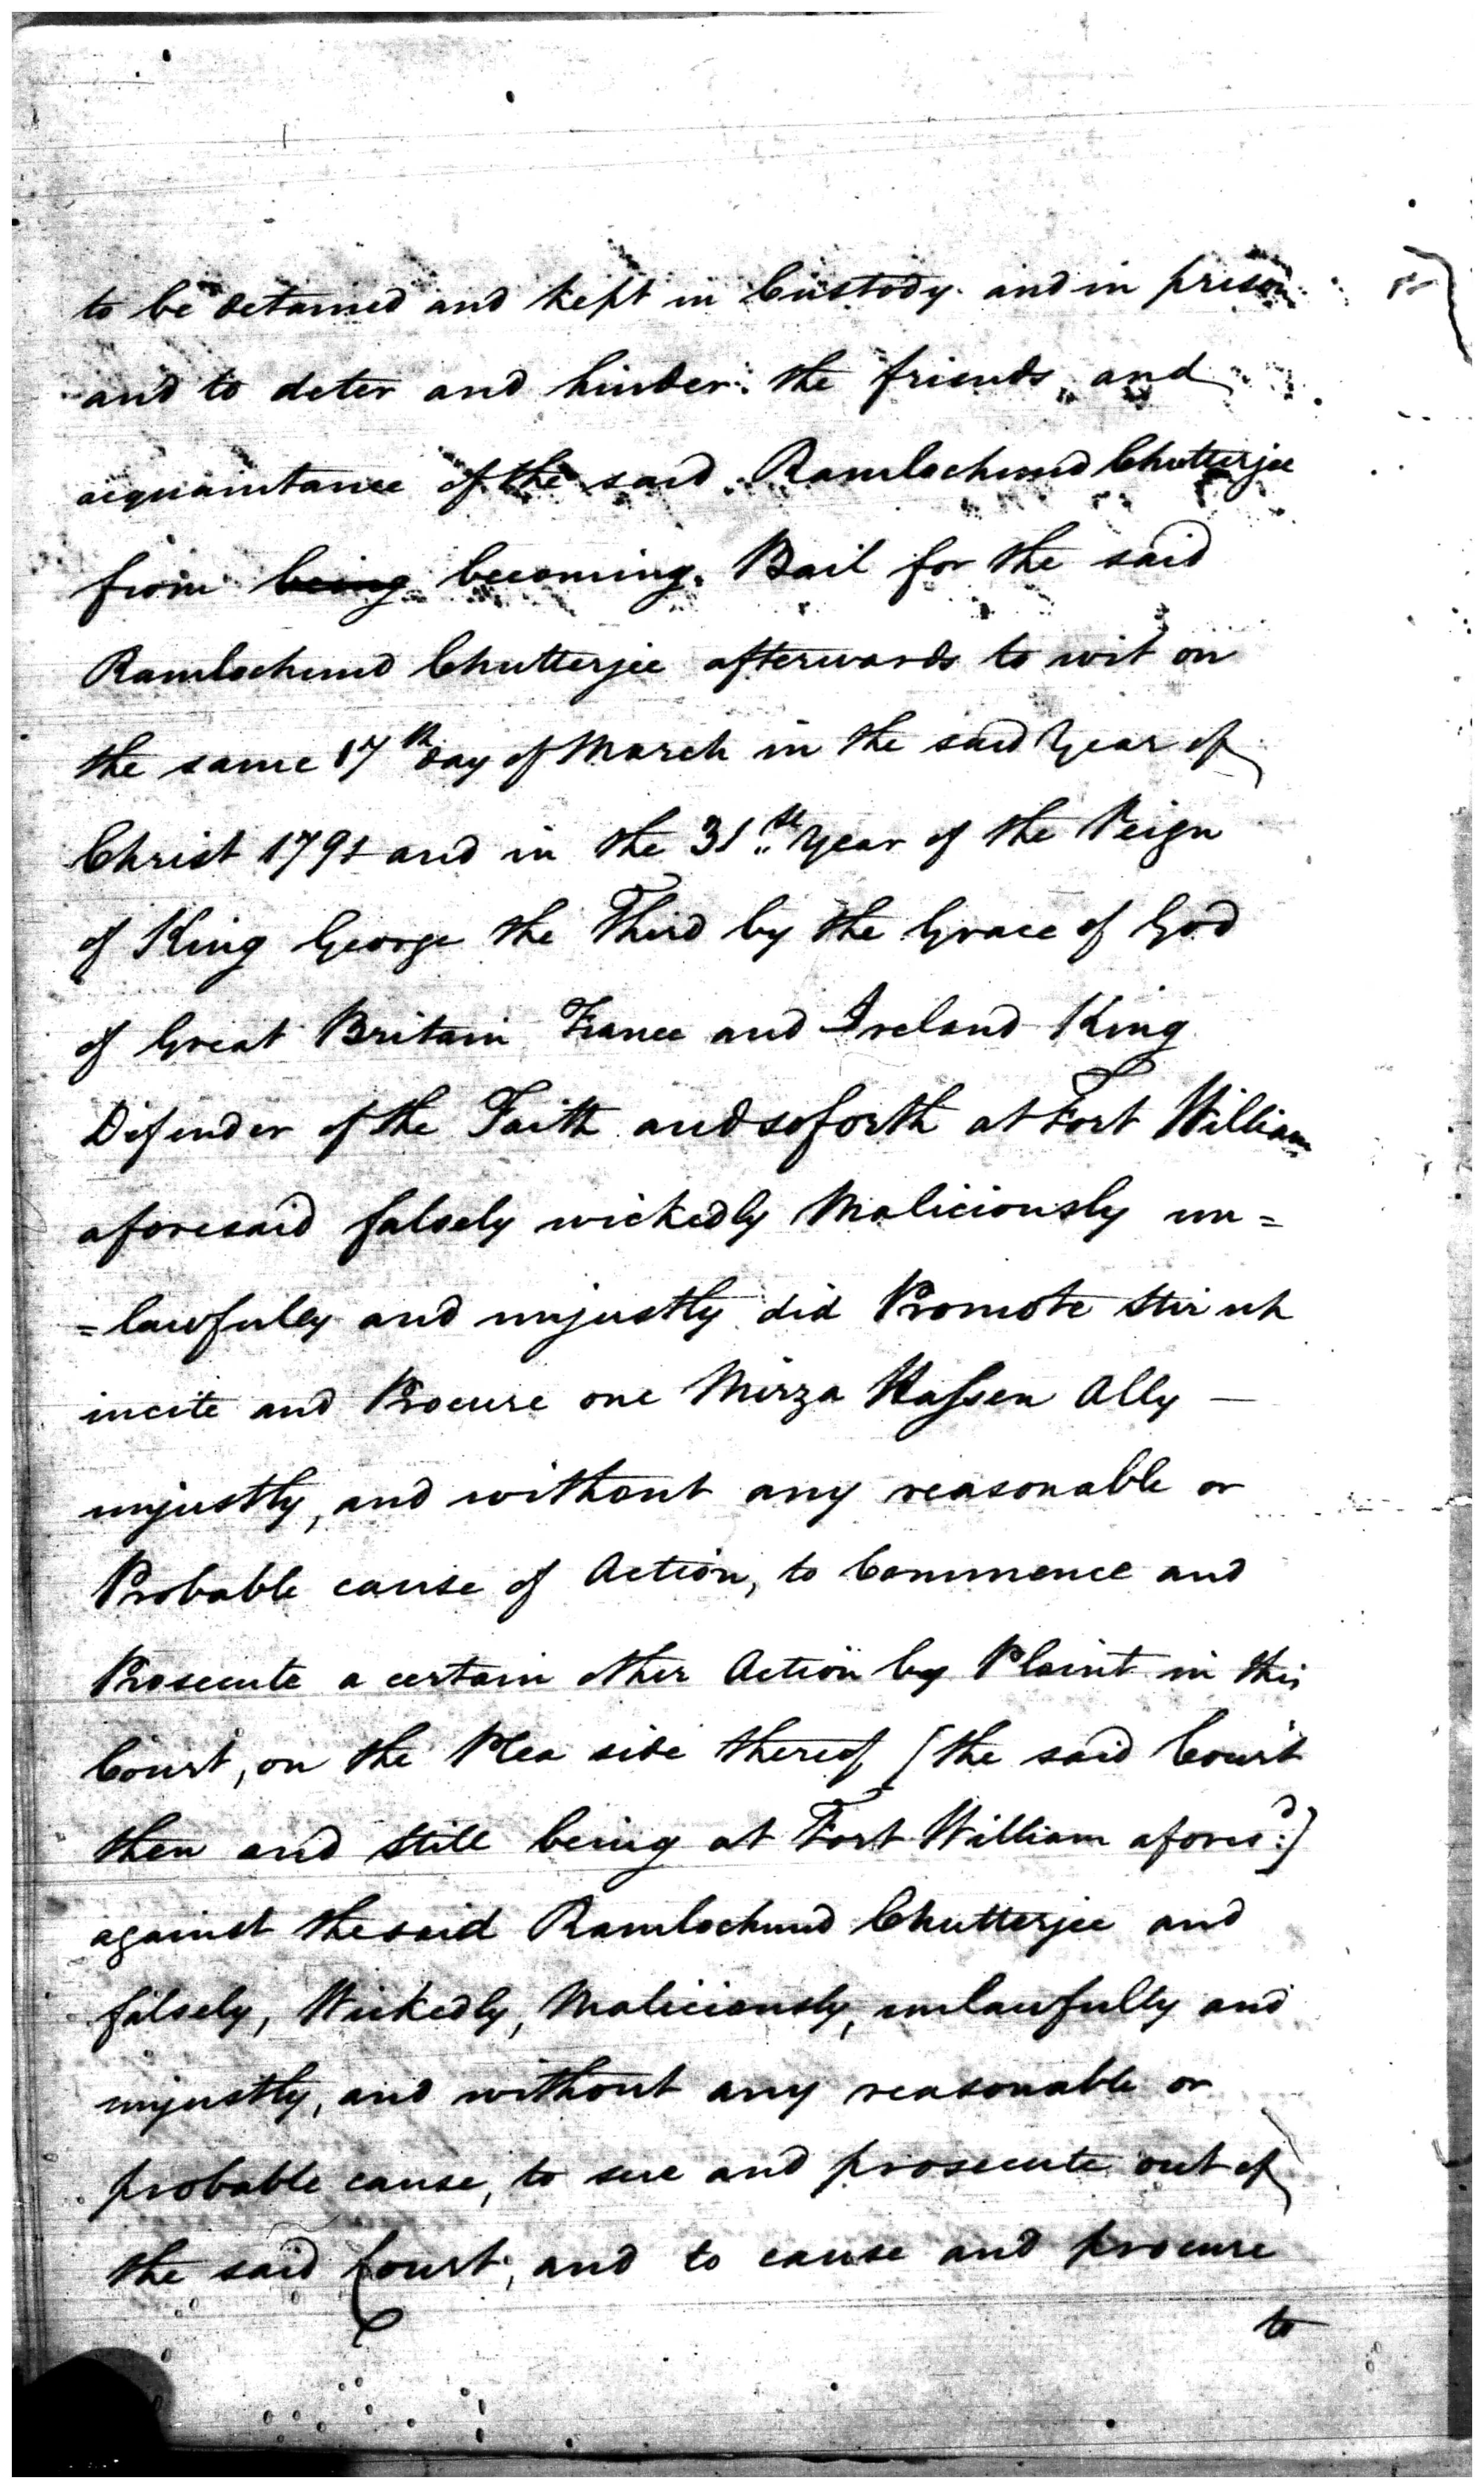 to be detained and kept in Custody and in prison
and to deter and hinder the friends and
acquaintance of the said Ramlochund Chutterjee
from being becoming Bail for the said
Ramlochund Chutterjee afterwards to wit on
the same 17th day of March in the said Year of
Christ 1791 and in the 31st Year of the Reign
of King George the Third by the Grace of God
of Great Britain France and Ireland King
Defender of the Faith and soforth at Fort William
aforesaid falsely wickedly Maliciously un=
=lawfully and unjustly did Promote stir up
incite and Procure one Mirza Hassen Ally —
unjustly, and without any reasonable or
Probable cause of Action, to Commence and
Prosecute a certain other Action by Plaint in this
Court, on the Plea side thereof [the said Court
then and still being at Fort William afores:d]
against the said Ramlochund Chutterjee and
falsely, Wickedly, Maliciously, unlawfully and
unjustly, and without any reasonable or
probable cause, to sue and prosecute out of
the said Court, and to cause and procure
to